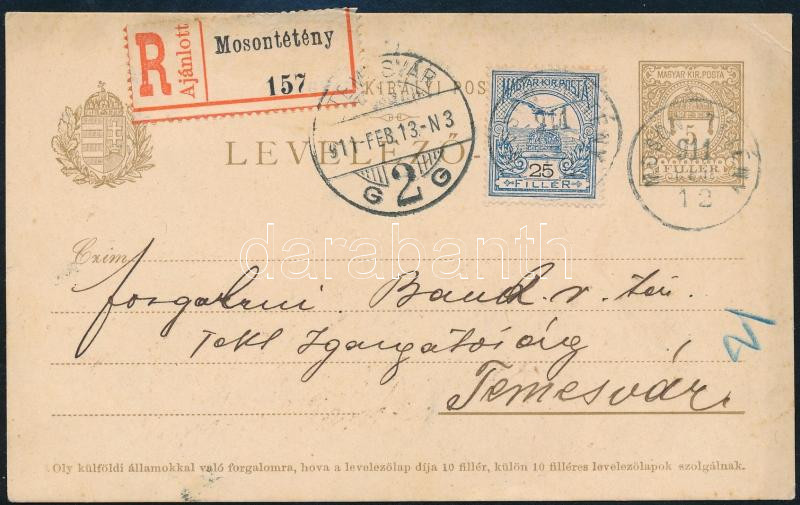 R Ajánlott Mosontétény
157
TEMESVÁR
911-FEB.13.-N3
G 2 G
MAGYAR·KIR·POSTA
911
25
FILLÉR
MAGYAR KIR. POSTA
5
911
FILLÉR
12
KIRÁLYI POS
LEVELEZŐ-
darabanth
Czim
forgalmi
Tekt Igazgatóság
Temesvár
21
Oly külföldi államokkal való forgalomra, hova a levelezőlap díja 10 fillér, külön 10 filléres levelezőlapok szolgálnak.